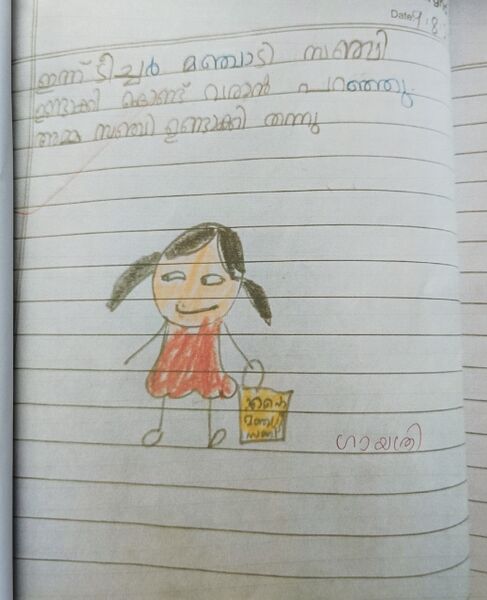 Date 9.8.
ഇന്ന് ടീച്ചർ മഞ്ചാടി സഞ്ചി
ഉണ്ടാക്കി കൊണ്ട് വരാൻ പറഞ്ഞു.
അമ്മ സഞ്ചി ഉണ്ടാക്കി തന്നു
സഞ്ചി
ഗായത്രി